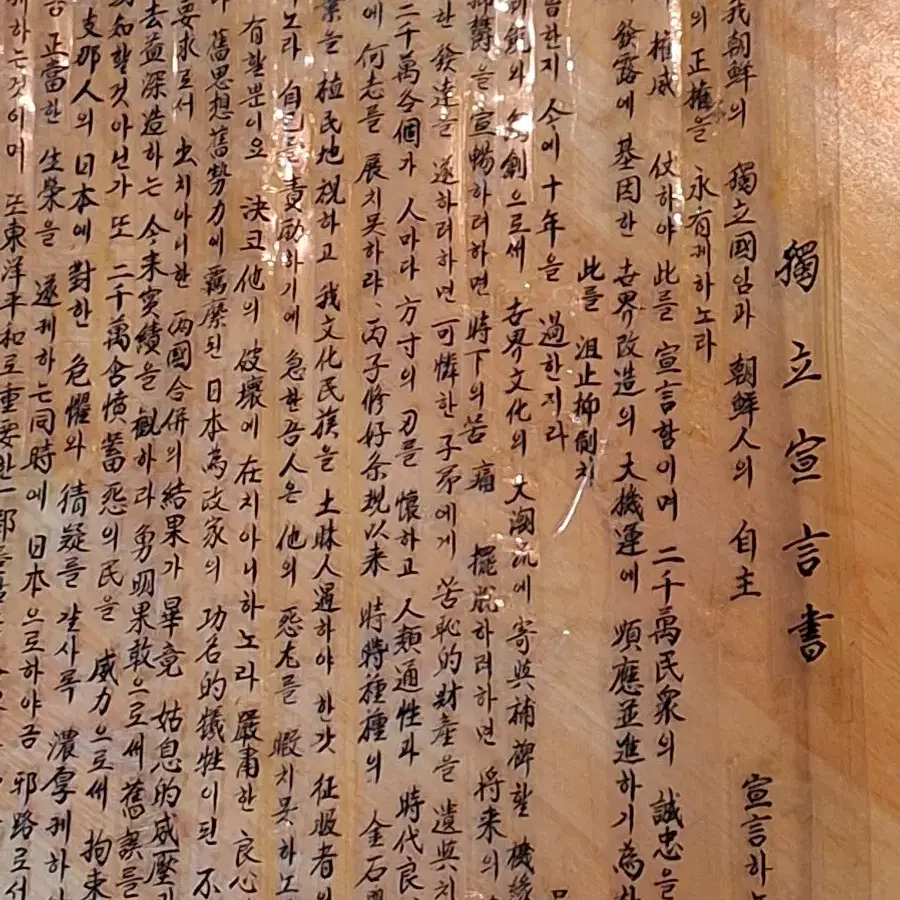 獨立宣言書
我朝鮮의 獨立國임과 朝鮮人의 自主 宣言하노
의 正權을 永有케하노라
權威 仗하야 此를 宣言함이며 二千萬民衆의 誠忠을
發露에 基因한 世界改造의 大機運에 順應並進하기 為하
此를 沮止抑制치
嘗한지 今에 十年을 過한지라
銳와 獨創으로세 世界文化의 大潮流에 寄與補裨할 機緣
抑鬱을 宣暢하려하면 時下의 苦痛 擺脫하려하면 将来의
한 發達을 遂하려하면 可憐한 子弟에게 苦恥的財產을 遺與치
二千萬各個가 人마다 方寸의 刃를 懷하고 人類通性과 時代良
에 何志를 展치못하랴、丙子修好条規以来 時時種種의 金石
業을 植民地視하고 我文化民族을 土昧人遇하야 한갓 征服者의
노라 自己를 責励하기에 急한吾人은 他의 怨尤를 暇치못하노
有할뿐이오 決코他의 破壞에 在치아니하노라 嚴肅한 良心
舊思想舊勢力에 羈縻된 日本為政家의 功名的犧牲이된 不
要求로서 出치아니한 両國合併의 結果가 畢竟 姑息的威壓
去益深造하는 今来実績을 観하라 勇明果敢으로써 舊誤를
知할것아닌가 또 二千萬含憤蓄怨의 民을 威力으로써 拘束
支那人의 日本에 對한 危懼와 猜疑를 갈사록 濃厚케하
正當한 生榮을 遂케하는同時에 日本으로하야금 邪路로서
하는것이며 또東洋平和로重要한一部를